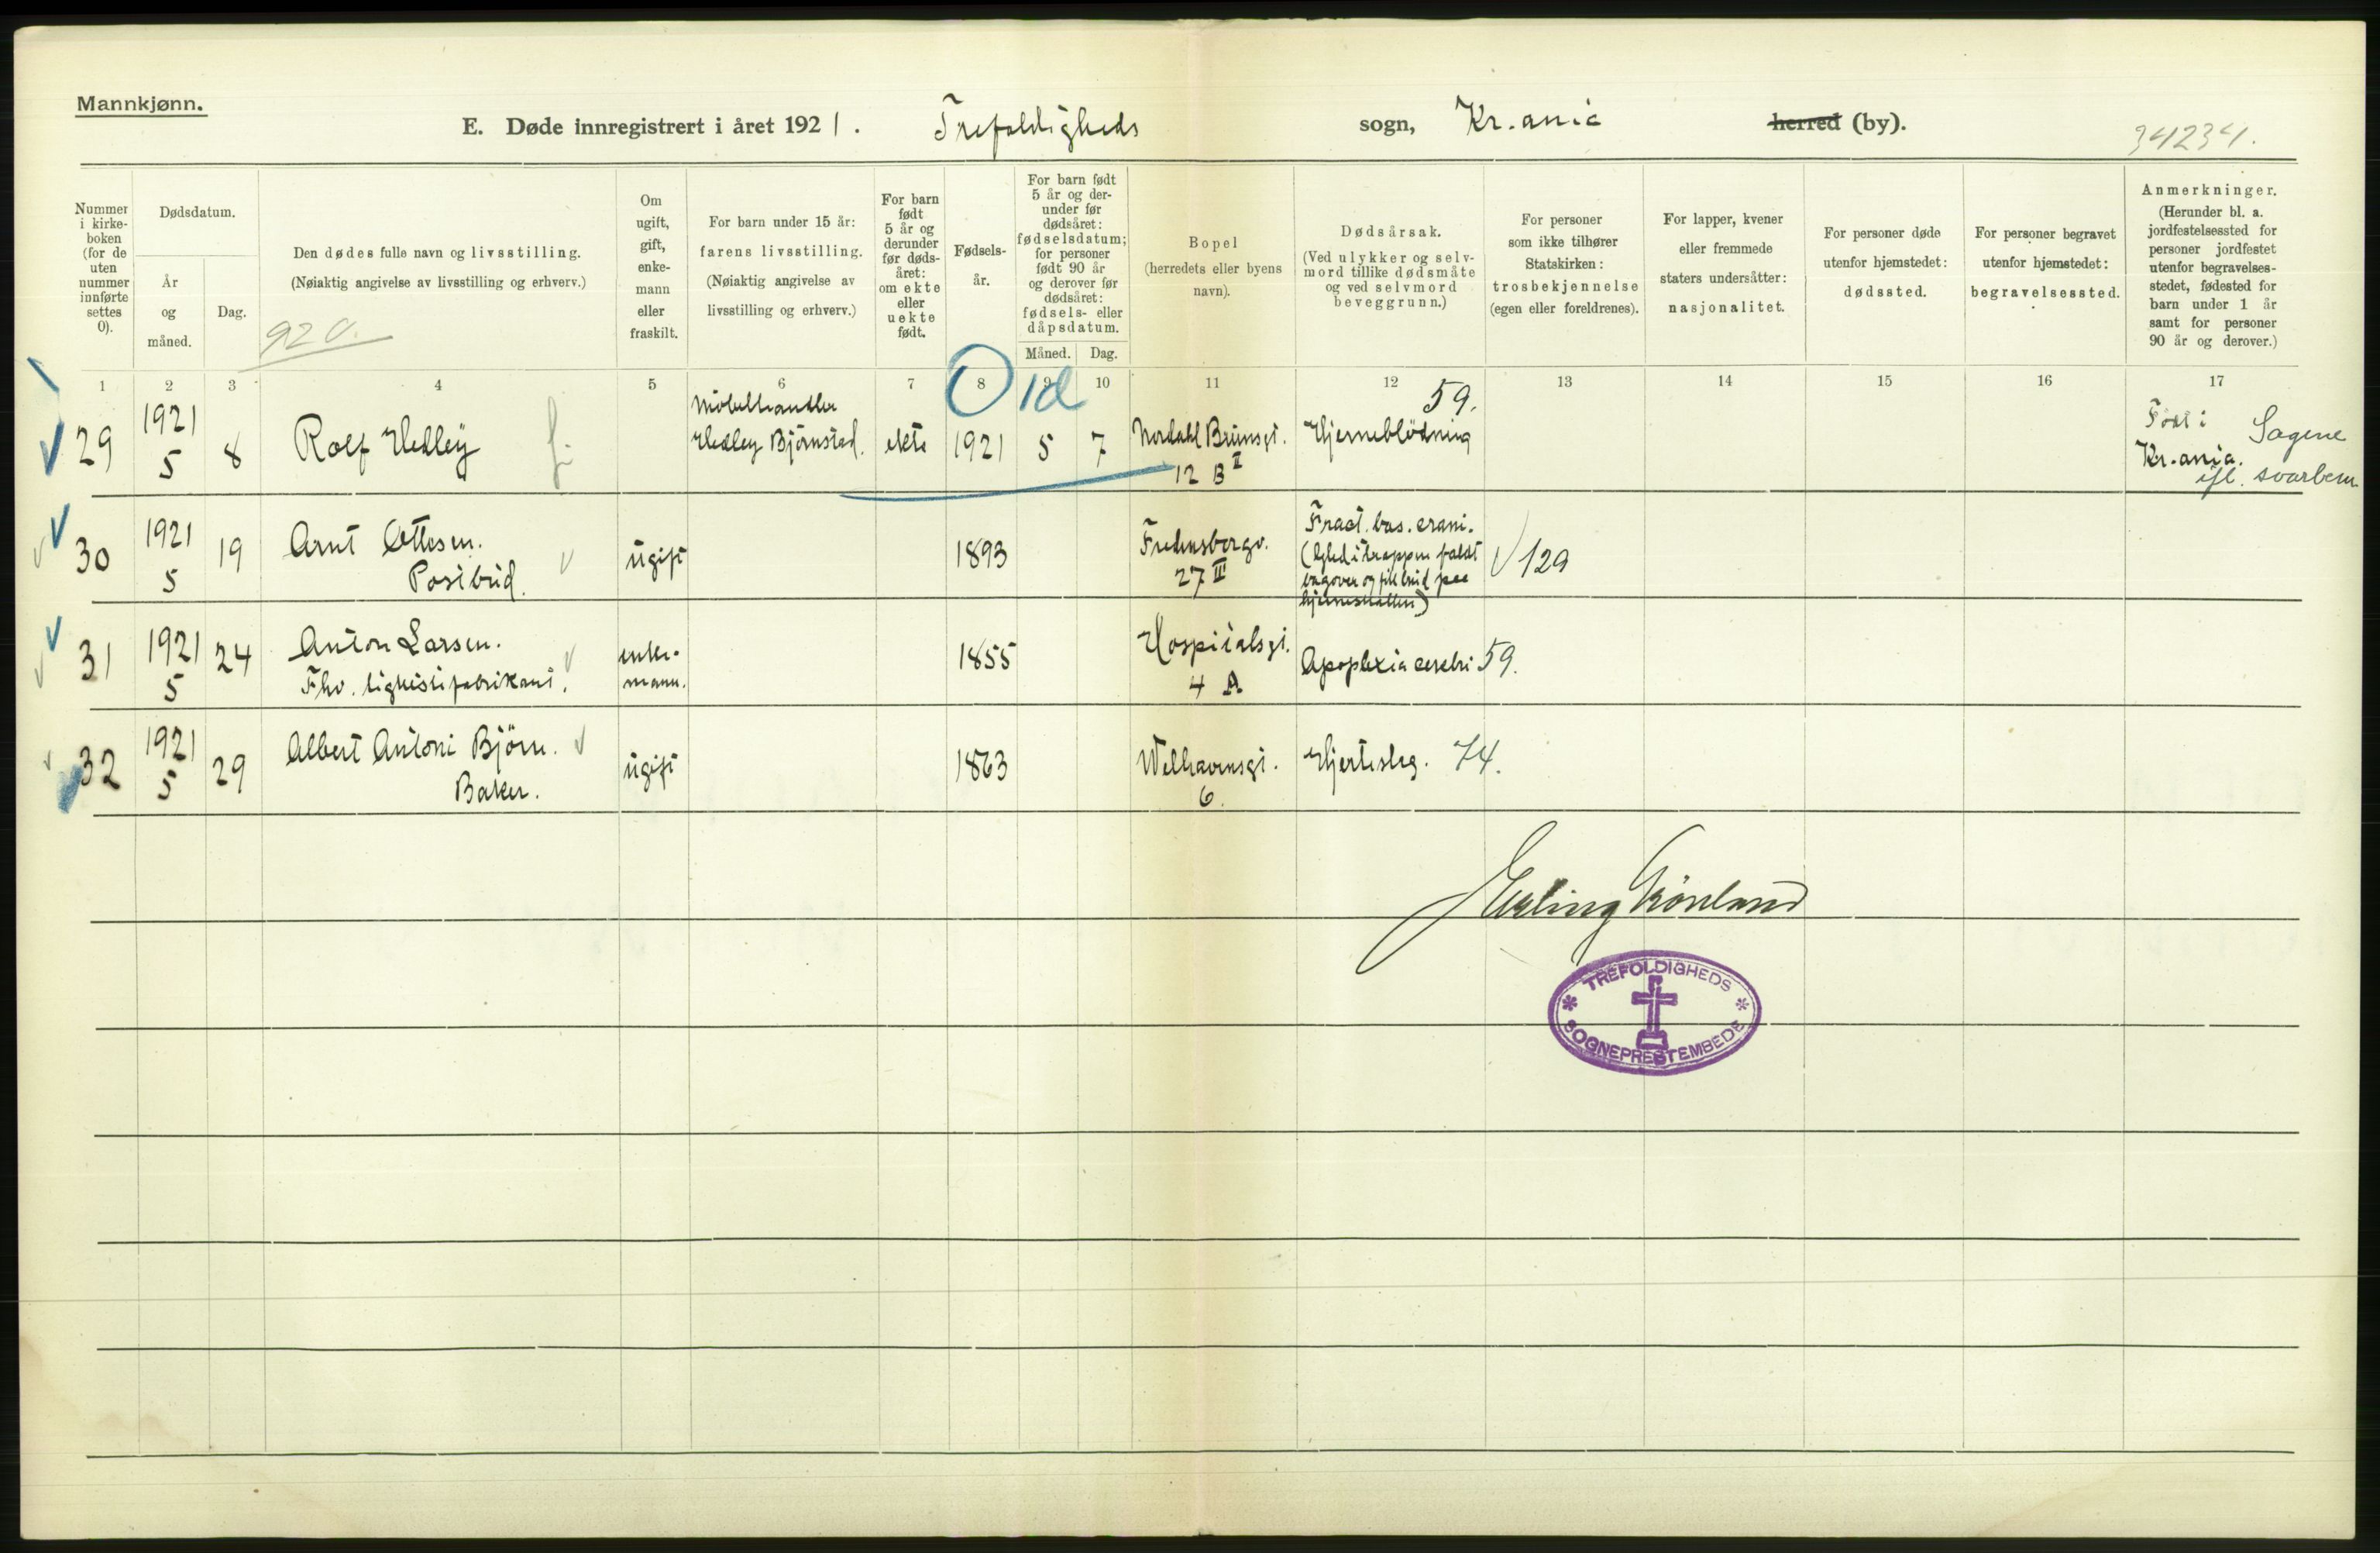 Mannkjønn.
E. Døde innregistrert i året 1921. Trefoldigheds sogn, Kr.ania herred (by).
34234.
Nummer i kirke- boken (for de uten nummer innførte settes 0).
Dødsdatum.
År og måned.
Dag.
Den dødes fulle navn og livsstilling.
(Nøiaktig angivelse av livsstilling og erhverv.)
920.
Om ugift, gift, enke- mann eller fraskilt.
For barn under 15 år:
farens livsstilling.
(Nøiaktig angivelse av livsstilling og erhverv.)
For barn født 5 år og derunder før døds- året: om ekte eller uekte født.
Fødsels- år.
For barn født 5 år og der- under før dødsåret: fødselsdatum; for personer født 90 år og derover før dødsåret: fødsels- eller dåpsdatum.
Måned. Dag.
Bopel
(herredets eller byens navn).
Dødsårsak.
(Ved ulykker og selv- mord tillike dødsmåte og ved selvmord beveggrunn.)
For personer som ikke tilhører Statskirken: trosbekjennelse (egen eller foreldrenes).
For lapper, kvener eller fremmede staters undersåtter: nasjonalitet.
For personer døde utenfor hjemstedet: dødssted.
For personer begravet utenfor hjemstedet: begravelsessted.
Anmerkninger.
(Herunder bl. a. jordfestelsessted for personer jordfestet utenfor begravelses- stedet, fødested for barn under 1 år samt for personer 90 år og derover.)
1 2 3 4 5 6 7 8 9 10 11 12 13 14 15 16 17
1d
29 1921 5 8 Rolf Hedley f. Møbelhandler Hedley Bjørnstad. ekte 1921 5 7 Nordahl Brunsgt. 12 B II Hjerneblødning 59. Født i Kr.ania. Sagene ifl. svarbrev
30 1921 5 19 Arnt Ottesen. Postbud. ugift 1893 Fredensborgv. 27 III Fract. bas. crani. (Gled i trappen faldt bagover og fik brud paa hjerneskallen) 129
31 1921 5 24 Anton Larsen. Fhv. ligkistefabrikant. enke- mann. 1855 Hospitalsgt. 4 A Apoplexia cerebri 59.
32 1921 5 29 Albert Antoni Bjørn. Baker. ugift 1863 Welhavensgt. 6. Hjerteslag. 74.
Erling Grønland
TREFOLDIGHEDS
SOGNEPRESTEMBEDE